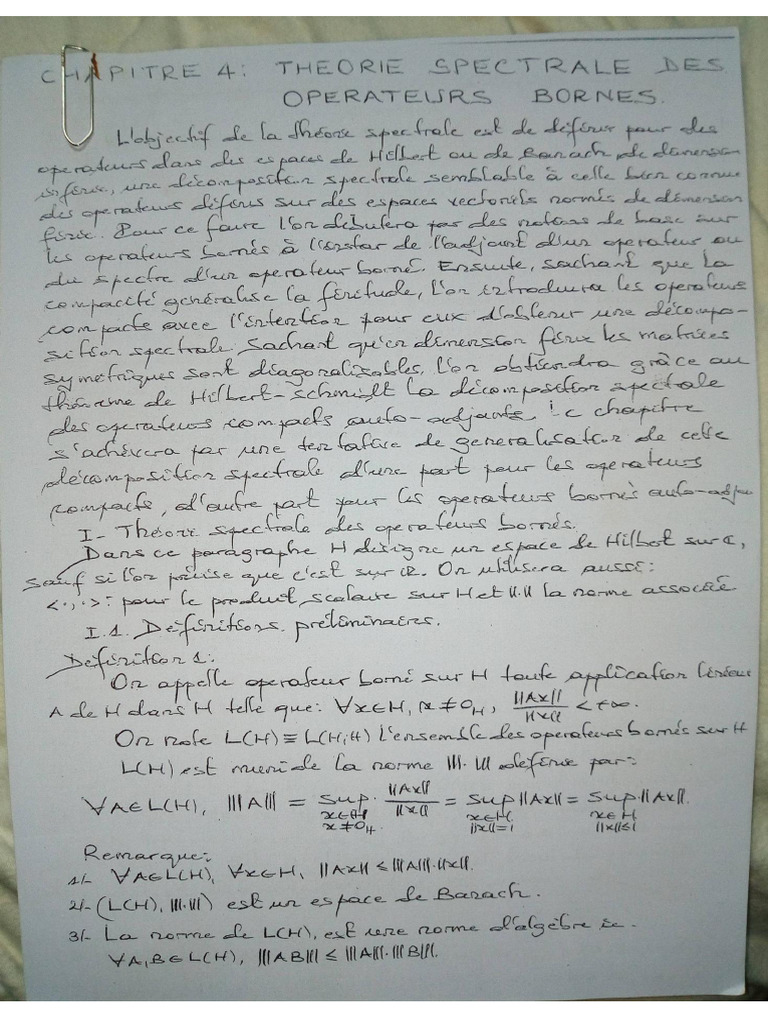 CHAPITRE 4: THEORIE SPECTRALE DES
OPERATEURS BORNES.
L'objectif de la théorie spectrale est de définir pour des
operateurs dans des espaces de Hilbert ou de Banach de dimension
infinie, une décomposition spectrale semblable à celle bien connue
des operateurs définis sur des espaces vectoriels normés de dimension
finie. Pour ce faire l'on debutera par des notions de base sur
les operateurs bornés à l'instar de l'adjoint d'un operateur ou
du spectre d'un operateur borné. Ensuite, sachant que la
compacité généralise la finitude, l'on introduira les operateurs
compacts avec l'intention pour eux d'obtenir une décompo-
sition spectrale. Sachant qu'en dimension finie les matrices
symétriques sont diagonalisables, l'on obtiendra grâce au
théorème de Hilbert-Schmidt la décomposition spectrale
des operateurs compacts auto-adjoints. Le chapitre
s'achèvera par une tentative de generalisation de cette
décomposition spectrale d'une part pour les operateurs
compacts, d'autre part pour les operateurs bornés auto-adjoi
I- Théorie spectrale des operateurs bornés.
Dans ce paragraphe H désigne un espace de Hilbert sur ℂ,
sauf si l'on précise que c'est sur ℝ. On utilisera aussi:
<·,·>: pour le produit scalaire sur H et ||.|| la norme associée
I.1. Définitions préliminaires.
Définition 1:
On appelle operateur borné sur H toute application linéaire
A de H dans H telle que: ∀x∈H, x≠0_H, ||Ax||/||x|| < +∞.
On note L(H) ≡ L(H,H) l'ensemble des operateurs bornés sur H
L(H) est muni de la norme |||·||| définie par:
∀A∈L(H), |||A||| = sup_{x∈H, x≠0_H} ||Ax||/||x|| = sup_{x∈H, ||x||=1} ||Ax|| = sup_{x∈H, ||x||≤1} ||Ax||.
Remarque:
1/- ∀A∈L(H), ∀x∈H, ||Ax|| ≤ |||A|||·||x||.
2/- (L(H), |||·|||) est un espace de Banach.
3/- La norme de L(H), est une norme d'algèbre ie.
∀A,B∈L(H), |||AB||| ≤ |||A|||·|||B|||.